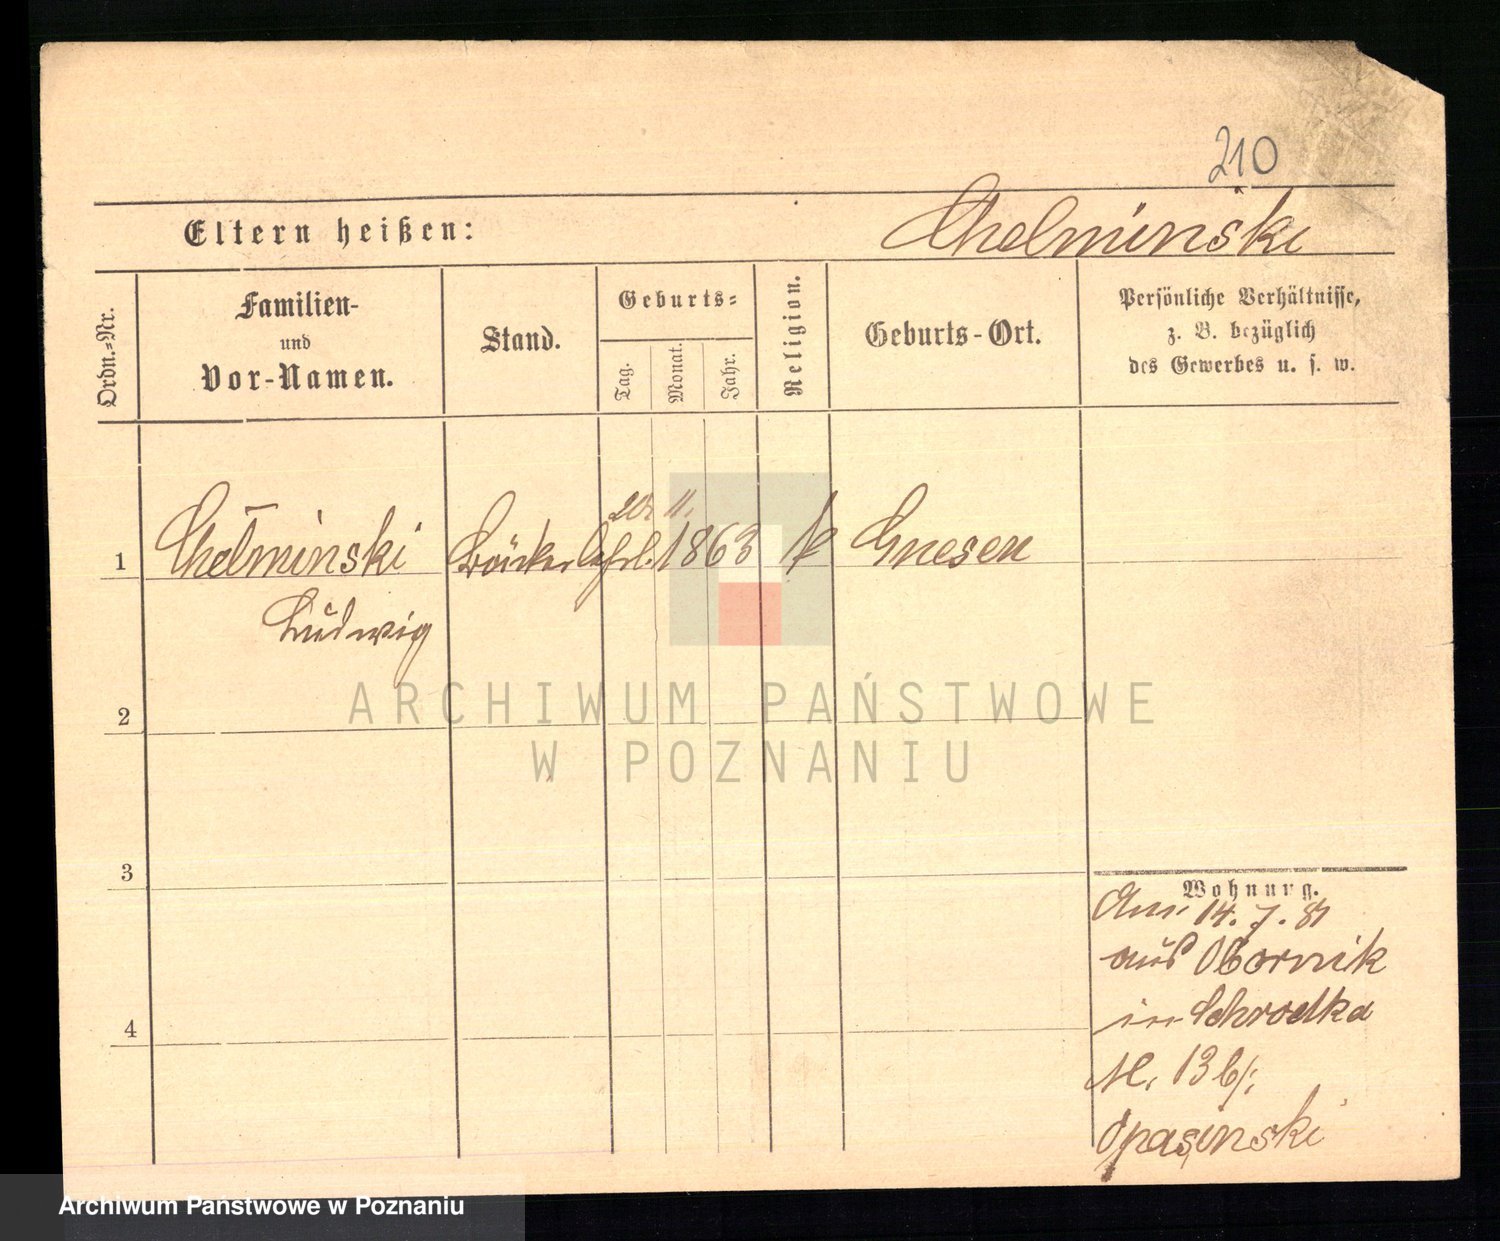 210
Eltern heißen:
Chelminski
Ordn.-Nr.
Familien-
und
Vor-Namen.
Stand.
Geburts-
Tag.
Monat.
Jahr.
Religion.
Geburts-Ort.
Persönliche Verhältnisse,
z. B. bezüglich
des Gewerbes u. s. w.
20. 11.
1 Chełminski Bäcker 1863 k Gnesen
Ludwig
2
3
4
Wohnung.
Am 14. 7. 81
aus Obornik
in Schrodka
N. 13 b/:
Opasinski
ARCHIWUM PAŃSTWOWE
W POZNANIU
Archiwum Państwowe w Poznaniu